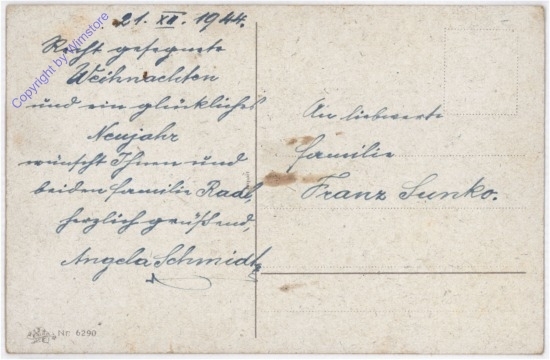 21. XII. 1944.
Recht gesegnete
Weihnachten
und ein glückliches
Neujahr
wünscht Ihnen und
beiden Familie Radl,
herzlich grüßend,
Angela Schmidt
An liebwerte
Familie
Franz Sunko.
Nr. 6290
Copyright by Wimstore